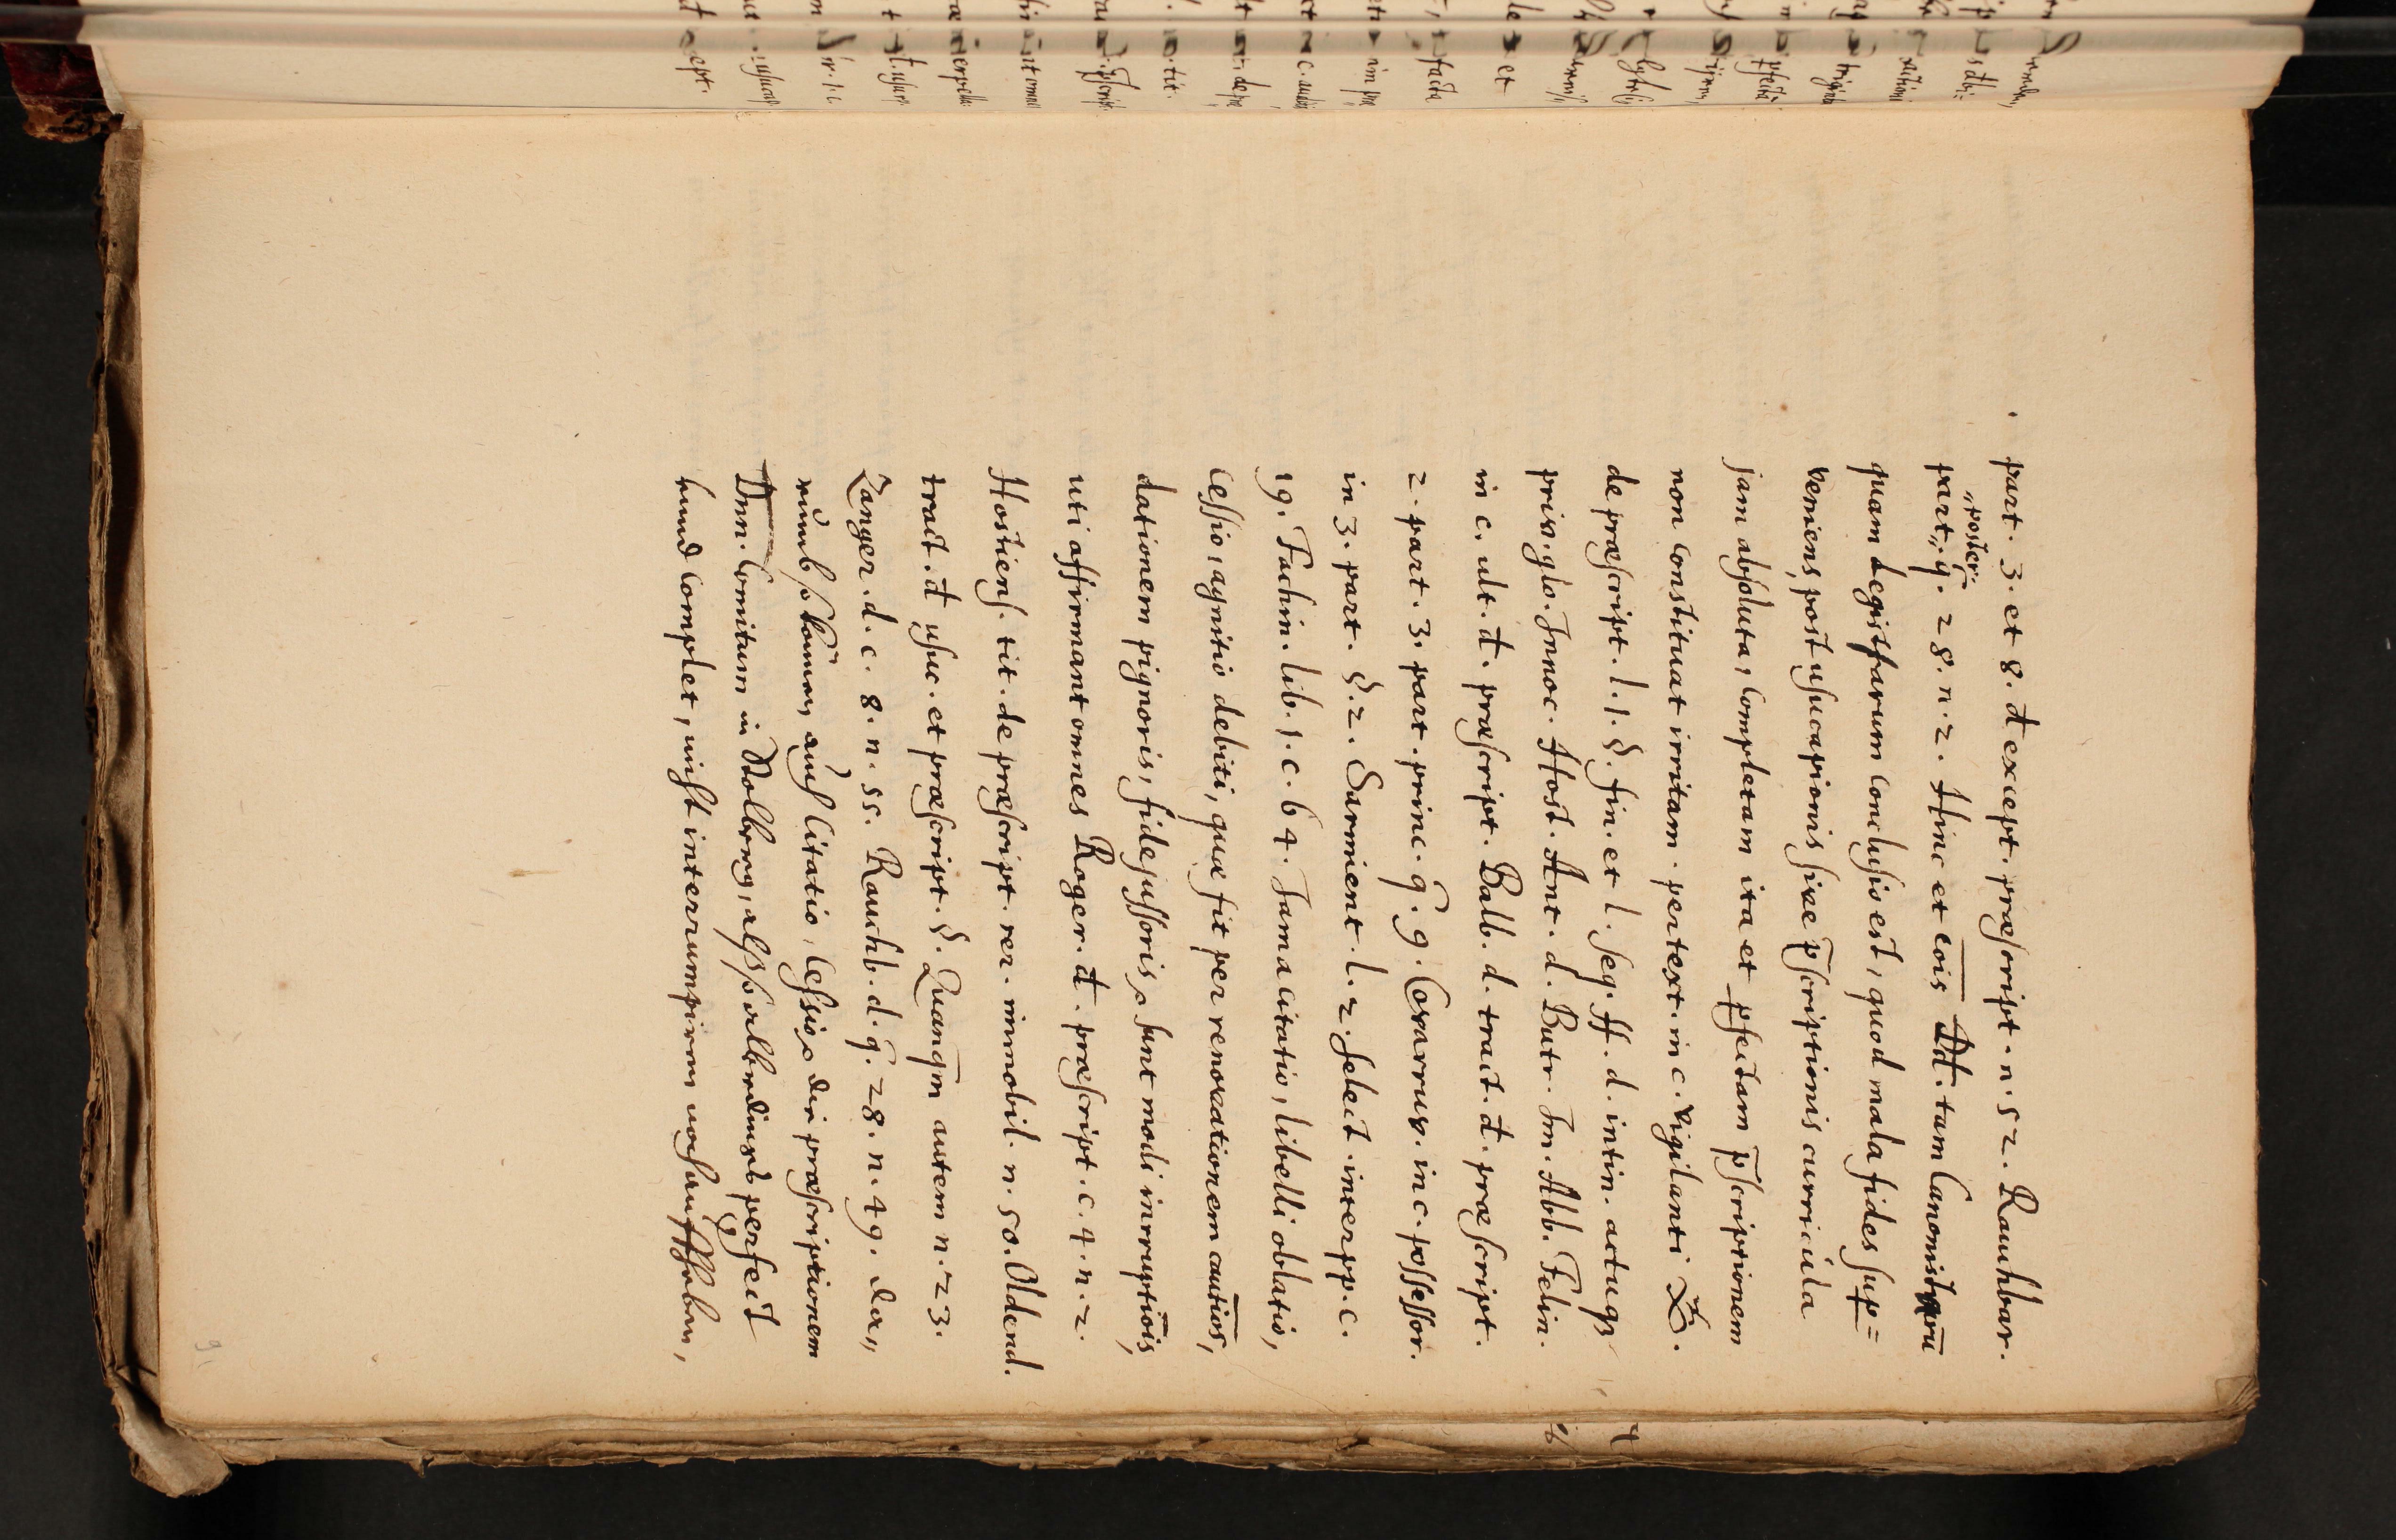 part. 3. et 8. đ except. præscript. n. 52. Rauchbar.
„poster.
part„ q. 28. n. 2. Hinc et cōis Dd. tam Canonistarū
quam Legistarum conclusio est, quod mala fides sup=
veniens, post usucapionis sive p̄scriptionis curricula
jam absoluta, completam ita et ꝑfectam p̄scriptionem
non constituat irritam. per text. in c. vigilanti X.
de præscript. l. 1. §. fin. et l. seq. ff. d. in tin. actuꝗ
priv. glo. Innoc. Host. Ant. d. Butr. Im. Abb. Felin.
in c. ult. đ. præscript. Balb. d. tract. đ. præscript.
2. part. 3. part. princ. q. 9. Covarruv. in c. possessor.
in 3. part. §. 2. Sarmient. l. 2. select. interpp. c.
19. Fachin. lib. 1. c. 64. Jam a citatio, libelli oblatio,
cessio, agnitio debiti, quæ fit per renovationem cautiōs,
dationem pignoris, fidejussoris ꝛ sunt modi inrruptiōis,
uti affirmant omnes Roger. đ. præscript. c. 4. n. 2.
Hostiens. tit. de præscript. rer. immobil. n. 50. Oldend.
tract. đ usuc. et præscript. §. Quanqm̄ autem n. 23.
Zanger. d. c. 8. n. 55. Rauchb. d. q. 28. n. 49. dar„
rumb so können auch Citatio, Cessio ꝛ die præscriptionem
Dnn. Comitum in Stolberg, alß so allerdings perfect
undt complet, nicht interrumpiren noch auffheben,